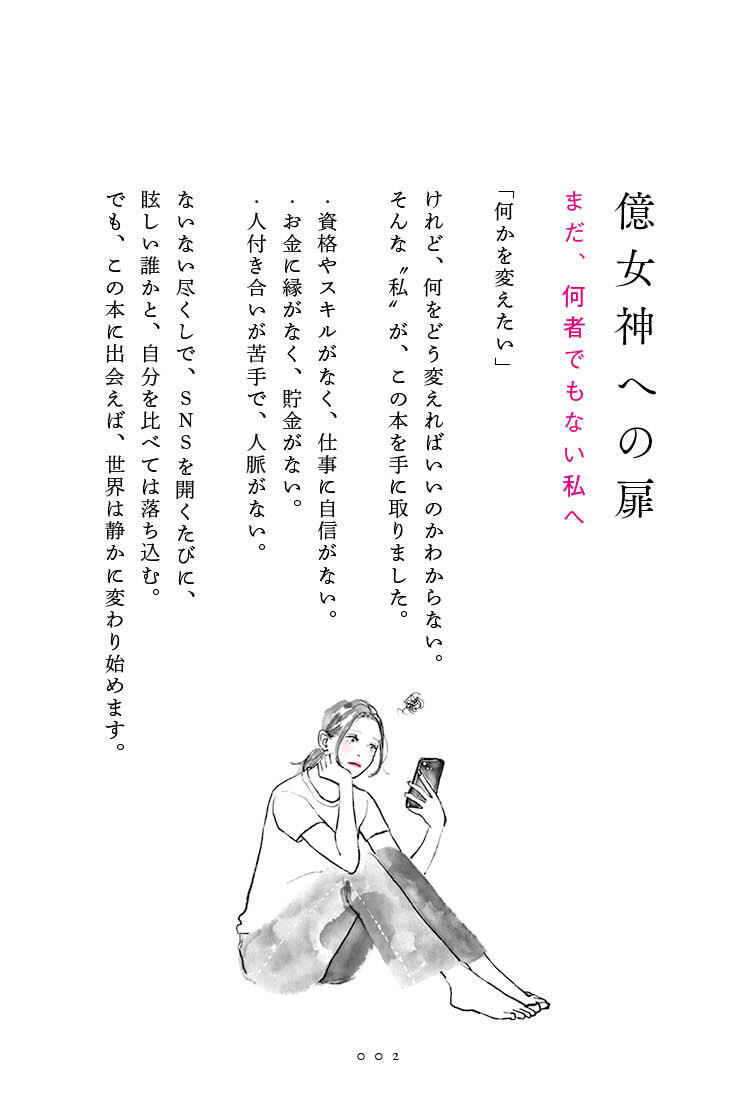 億女神への扉
まだ、何者でもない私へ
「何かを変えたい」
けれど、何をどう変えればいいのかわからない。
そんな〝私〟が、この本を手に取りました。
・資格やスキルがなく、仕事に自信がない。
・お金に縁がなく、貯金がない。
・人付き合いが苦手で、人脈がない。
ないない尽くしで、SNSを開くたびに、
眩しい誰かと、自分を比べては落ち込む。
でも、この本に出会えば、世界は静かに変わり始めます。
002